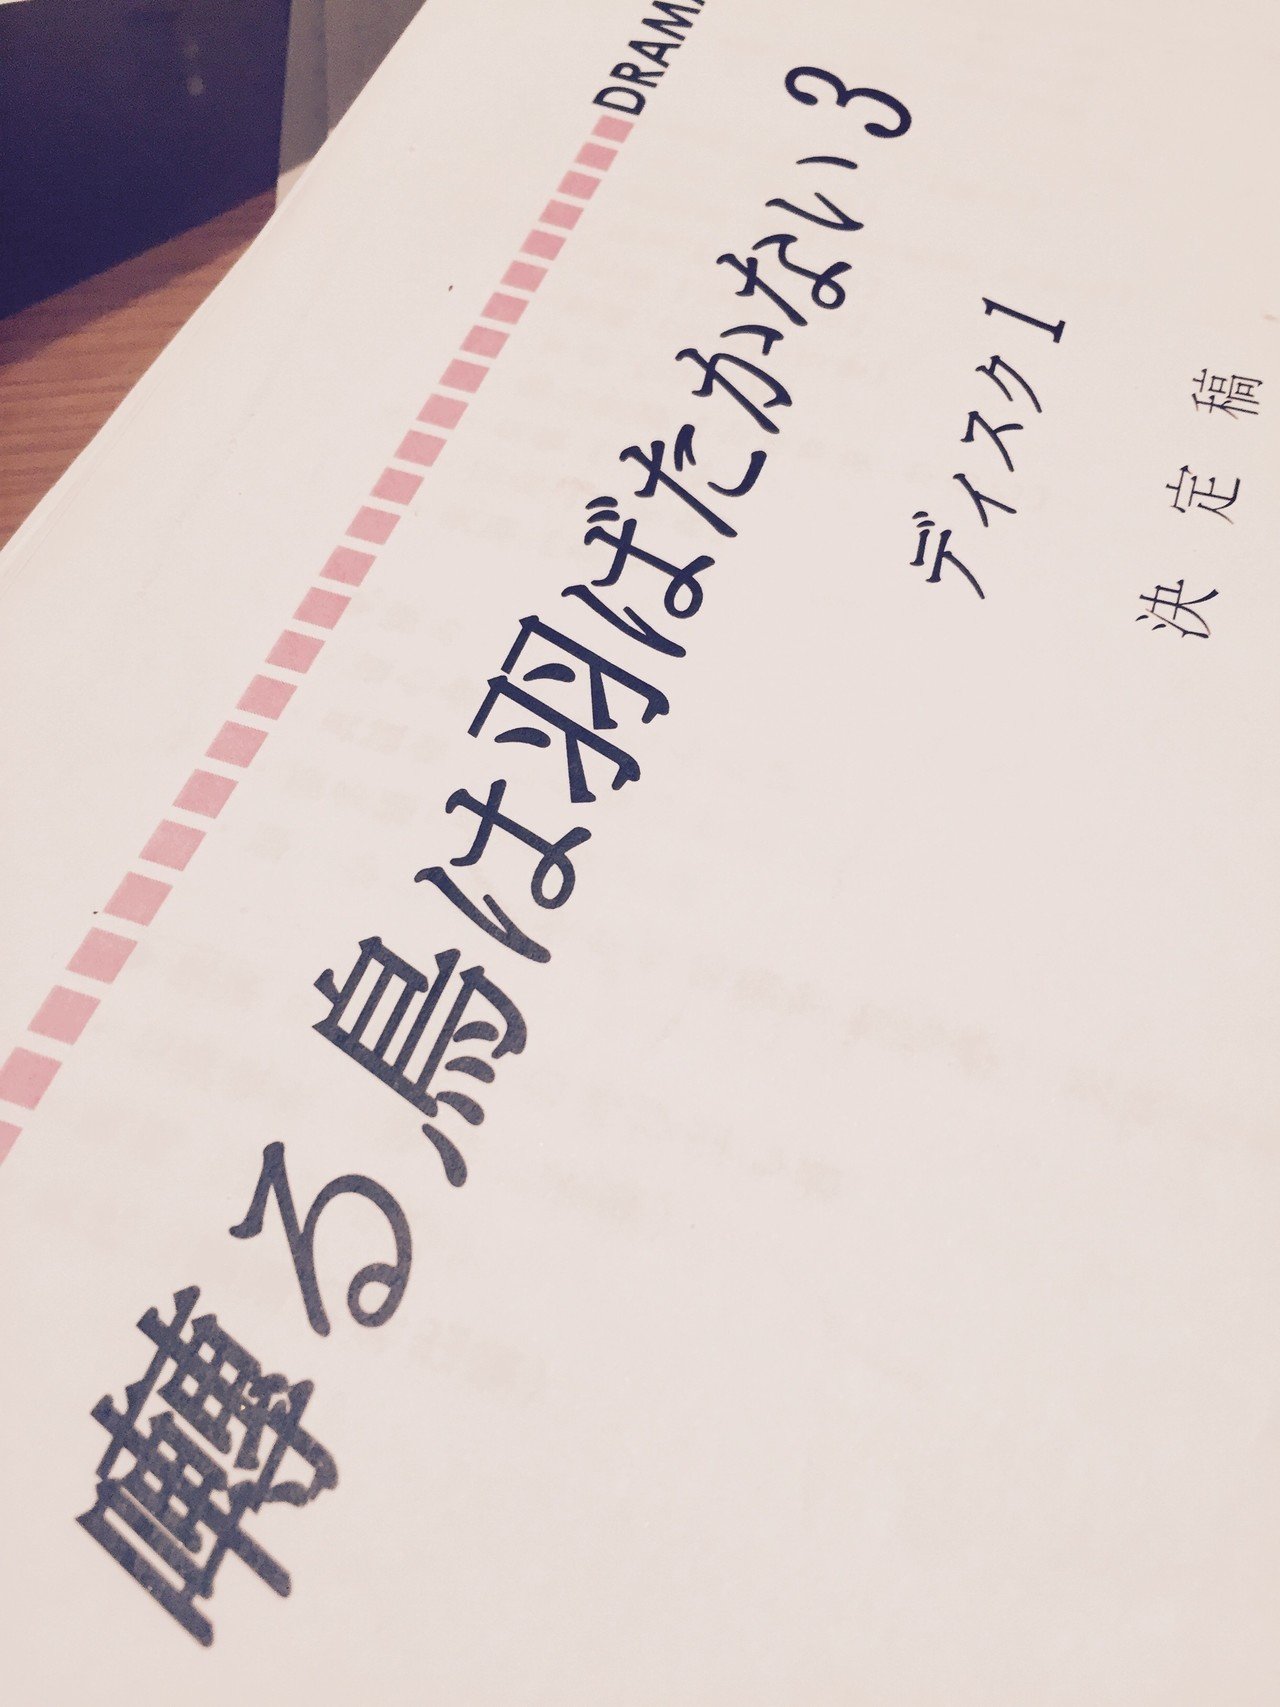 DRAMA
囀る鳥は羽ばたかない3
ディスク1
決定稿